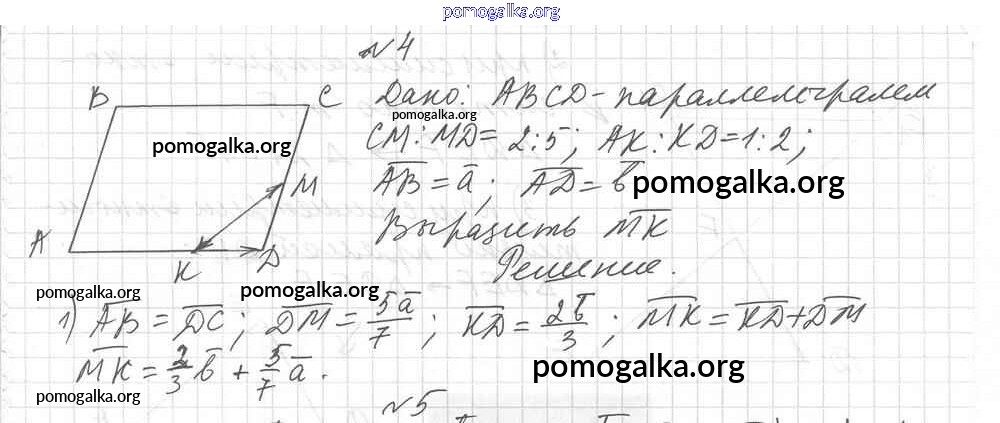 pomogalka.org
№4
Дано: ABCD - параллелограмм
pomogalka.org
CM : MD = 2:5; AK : KD = 1:2;
pomogalka.org
AB = a; AD = b
pomogalka.org
Выразить MK
Решение.
B
C
M
A
K
D
pomogalka.org
pomogalka.org
1) AB = DC; DM = 5a/7; KD = 2b/3; MK = KD + DM
MK = 2/3 b + 5/7 a.
pomogalka.org
pomogalka.org
№5